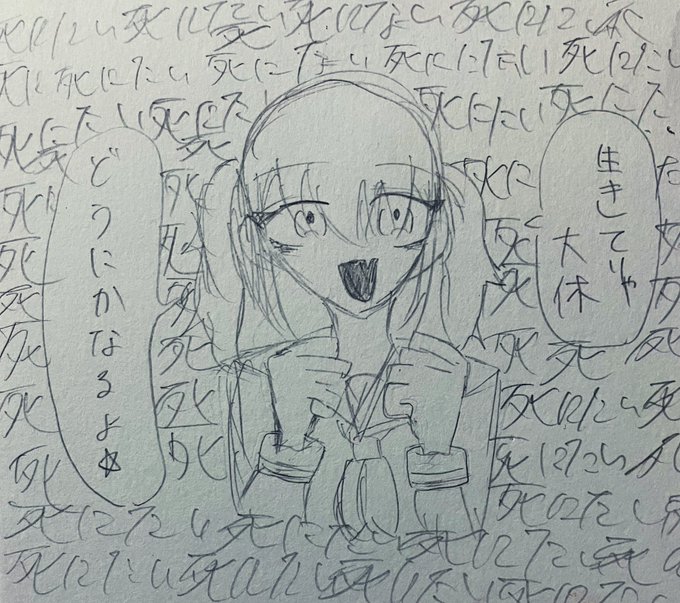 死にたい死にたい死にたい死にたい死
死に死にたい死にたい死にたい死にたい
死にたい死にたい
死にたい死にた
生きしてりゃ
大休
どうにかなるよ☆
死に
死
死
死
死
死
死にたい死
死にたい
死にたい
死にたい死にたい死にたい
死にたい死にたい死にたい死にた